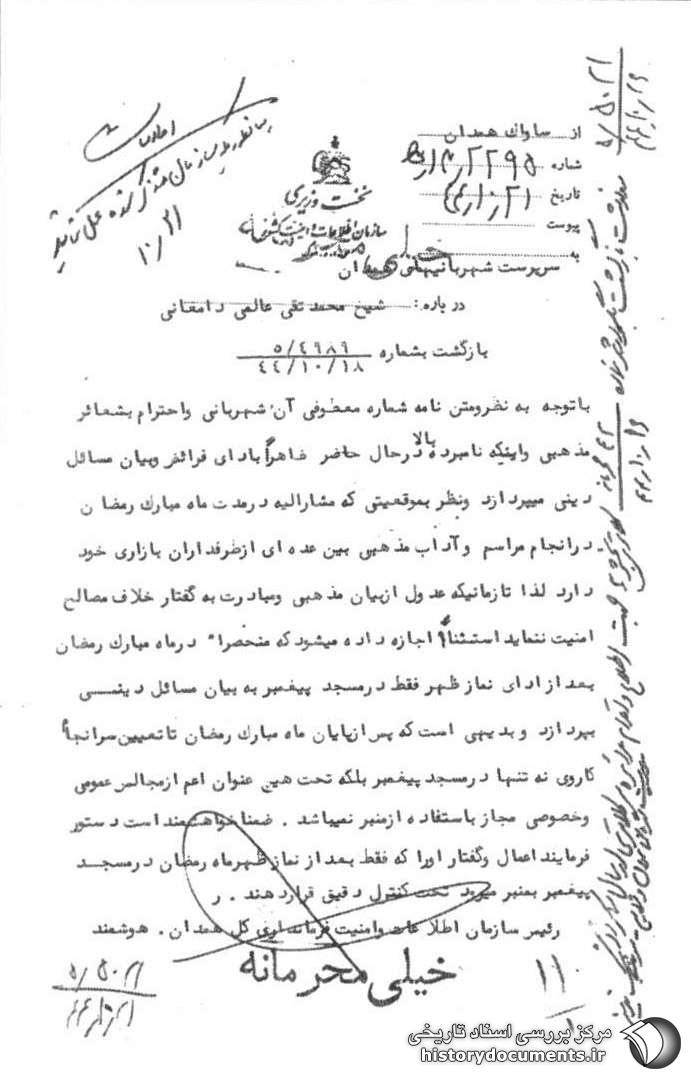 از ساواك همدان
شماره
تاریخ ۴۴/۱۰/۲۱
پیوست
به
نخست وزیری
سازمان اطلاعات و امنیت کشور
خیلی
سرپرست شهربانیهای همدان
در باره : شیخ محمد تقی عالمی دامغانی
بازگشت بشماره ۵/۴۹۸۹
۴۴/۱۰/۱۸
باتوجه به نظرومتن نامه شماره معطوفی آن شهربانی واحترام بشعائر
مذهبی واینکه نامبرده بالا درحال حاضر ظاهراً بادای فرائض وبیان مسائل
دینی میپردازد ونظر بموقعیتی که مشارالیه درمدت ماه مبارك رمضان
درانجام مراسم وآداب مذهبی بین عده ای ازطرفداران بازاری خود
دارد لذا تازمانیکه عدول ازبیان مذهبی ومبادرت به گفتار خلاف مصالح
امنیت ننماید استثنأً اجازه داده میشود که منحصرا" درماه مبارك رمضان
بعد از ادای نماز ظهر فقط درمسجد پیغمبر به بیان مسائل دینی
بپردازد وبدیهی است که پس ازپایان ماه مبارك رمضان تاتعیین سرانجام
کاروی نه تنها درمسجد پیغمبر بلکه تحت هیچ عنوان اعم ازمجالس عمومی
وخصوصی مجاز باستفاده ازمنبر نمیباشد . ضمنا خواهشمند است دستور
فرمایند اعمال وگفتار اورا که فقط بعد از نماز ظهرماه رمضان درمسجد
پیغمبر بمنبر میرود تحت کنترل دقیق قراردهند . ر
رئیس سازمان اطلاعات وامنیت فرمانداری کل همدان . هوشمند
خیلی محرمانه
۱۱
۵/۵۰۲۱
۴۴/۱۰/۲۱
مرکز بررسی اسناد تاریخی
historydocuments.ir